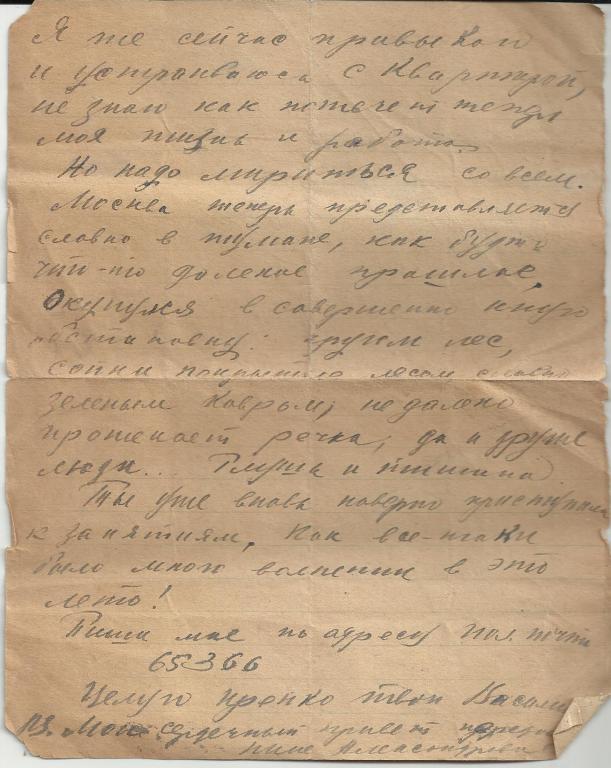 Я же сейчас привыкаю
и устраиваюсь с квартирой,
не знаю как потечет теперь
моя жизнь и работа.
Но надо мириться со всем.
Москва теперь представляется
словно в тумане, как будто
что-то далекое прошлое.
Окунулся в совершенно иную
обстановку: кругом лес,
сопки покрытые лесом словно
зеленым ковром, недалеко
протекает речка, да и другие
люди... Глушь и тишина.
Ты уже вновь наверно приступила
к занятиям. Как все-таки
было много волнений в это
лето!
Пиши мне по адресу Пол. почта
65366
Целую крепко твой Василий
P.S. Мой сердечный привет передай
Нине Александровне